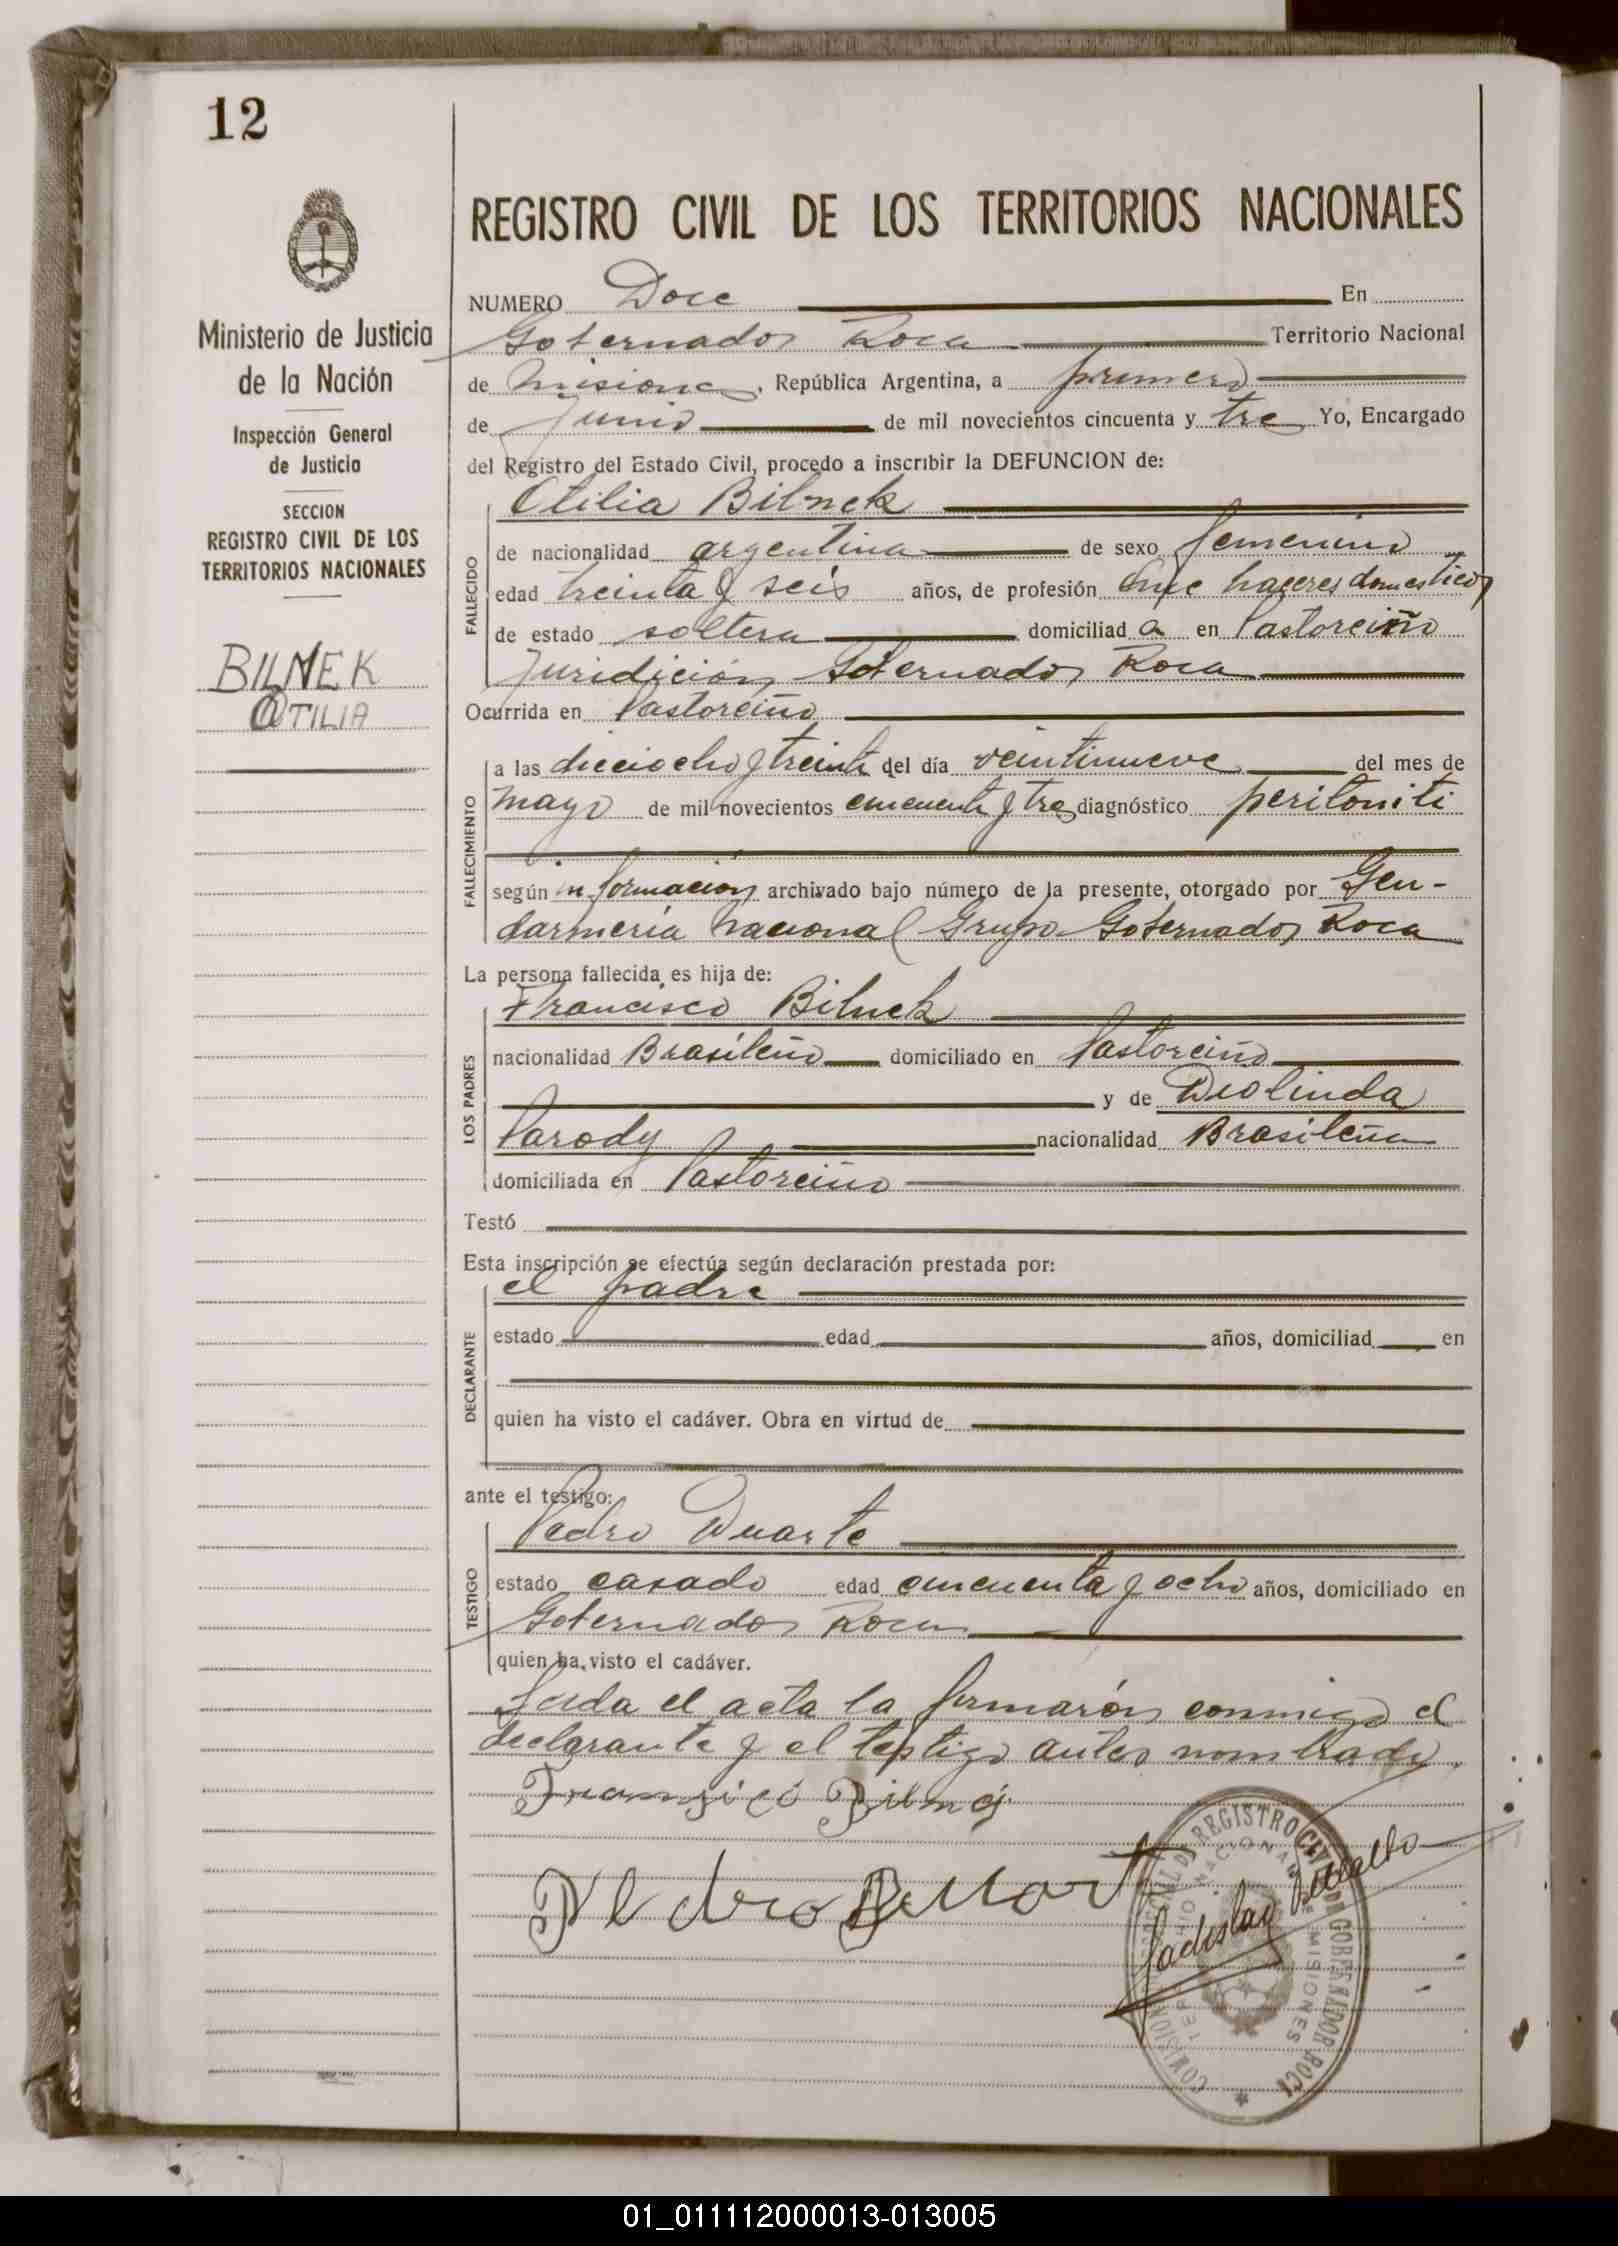 12
Ministerio de Justicia
de la Nación
Inspección General
de Justicia
SECCION
REGISTRO CIVIL DE LOS
TERRITORIOS NACIONALES
BILNEK
OTILIA
REGISTRO CIVIL DE LOS TERRITORIOS NACIONALES
NUMERO Doce En
Gobernador Roca Territorio Nacional
de Misiones, República Argentina, a primero
de Junio de mil novecientos cincuenta y tres Yo, Encargado
del Registro del Estado Civil, procedo a inscribir la DEFUNCION de:
Otilia Bilnek
FALLECIDO
de nacionalidad argentina de sexo femenino
edad treinta y seis años, de profesión Que haceres domesticos
de estado soltera domiciliad a en Pastoreiño
Juridición Gobernador Roca
Ocurrida en Pastoreiño
FALLECIMIENTO
a las dieciocho y treinta del día veintinueve del mes de
mayo de mil novecientos cincuenta y tres diagnóstico peritoniti
según información archivado bajo número de la presente, otorgado por Gen-
darmería Nacional Grupo Gobernador Roca
La persona fallecida es hija de:
LOS PADRES
Francisco Bilnek
nacionalidad Brasileño domiciliado en Pastoreiño
y de Diolinda
Parody nacionalidad Brasileña
domiciliada en Pastoreiño
Testó
Esta inscripción se efectúa según declaración prestada por:
DECLARANTE
el padre
estado edad años, domiciliad en
quien ha visto el cadáver. Obra en virtud de
ante el testigo:
TESTIGO
Pedro Duarte
estado casado edad cincuenta y ocho años, domiciliado en
Gobernador Roca
quien ha visto el cadáver.
Leida el acta la firmarón conmigo el
declarante y el testigo antes nombrado
Pedro Duart
REGISTRO CIVIL DE GOBERNADOR ROCA
MISIONES
Ladislao
01_011112000013-013005